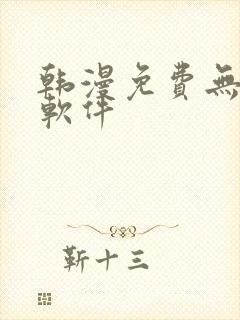 韩漫免費無
軟件
靳十三